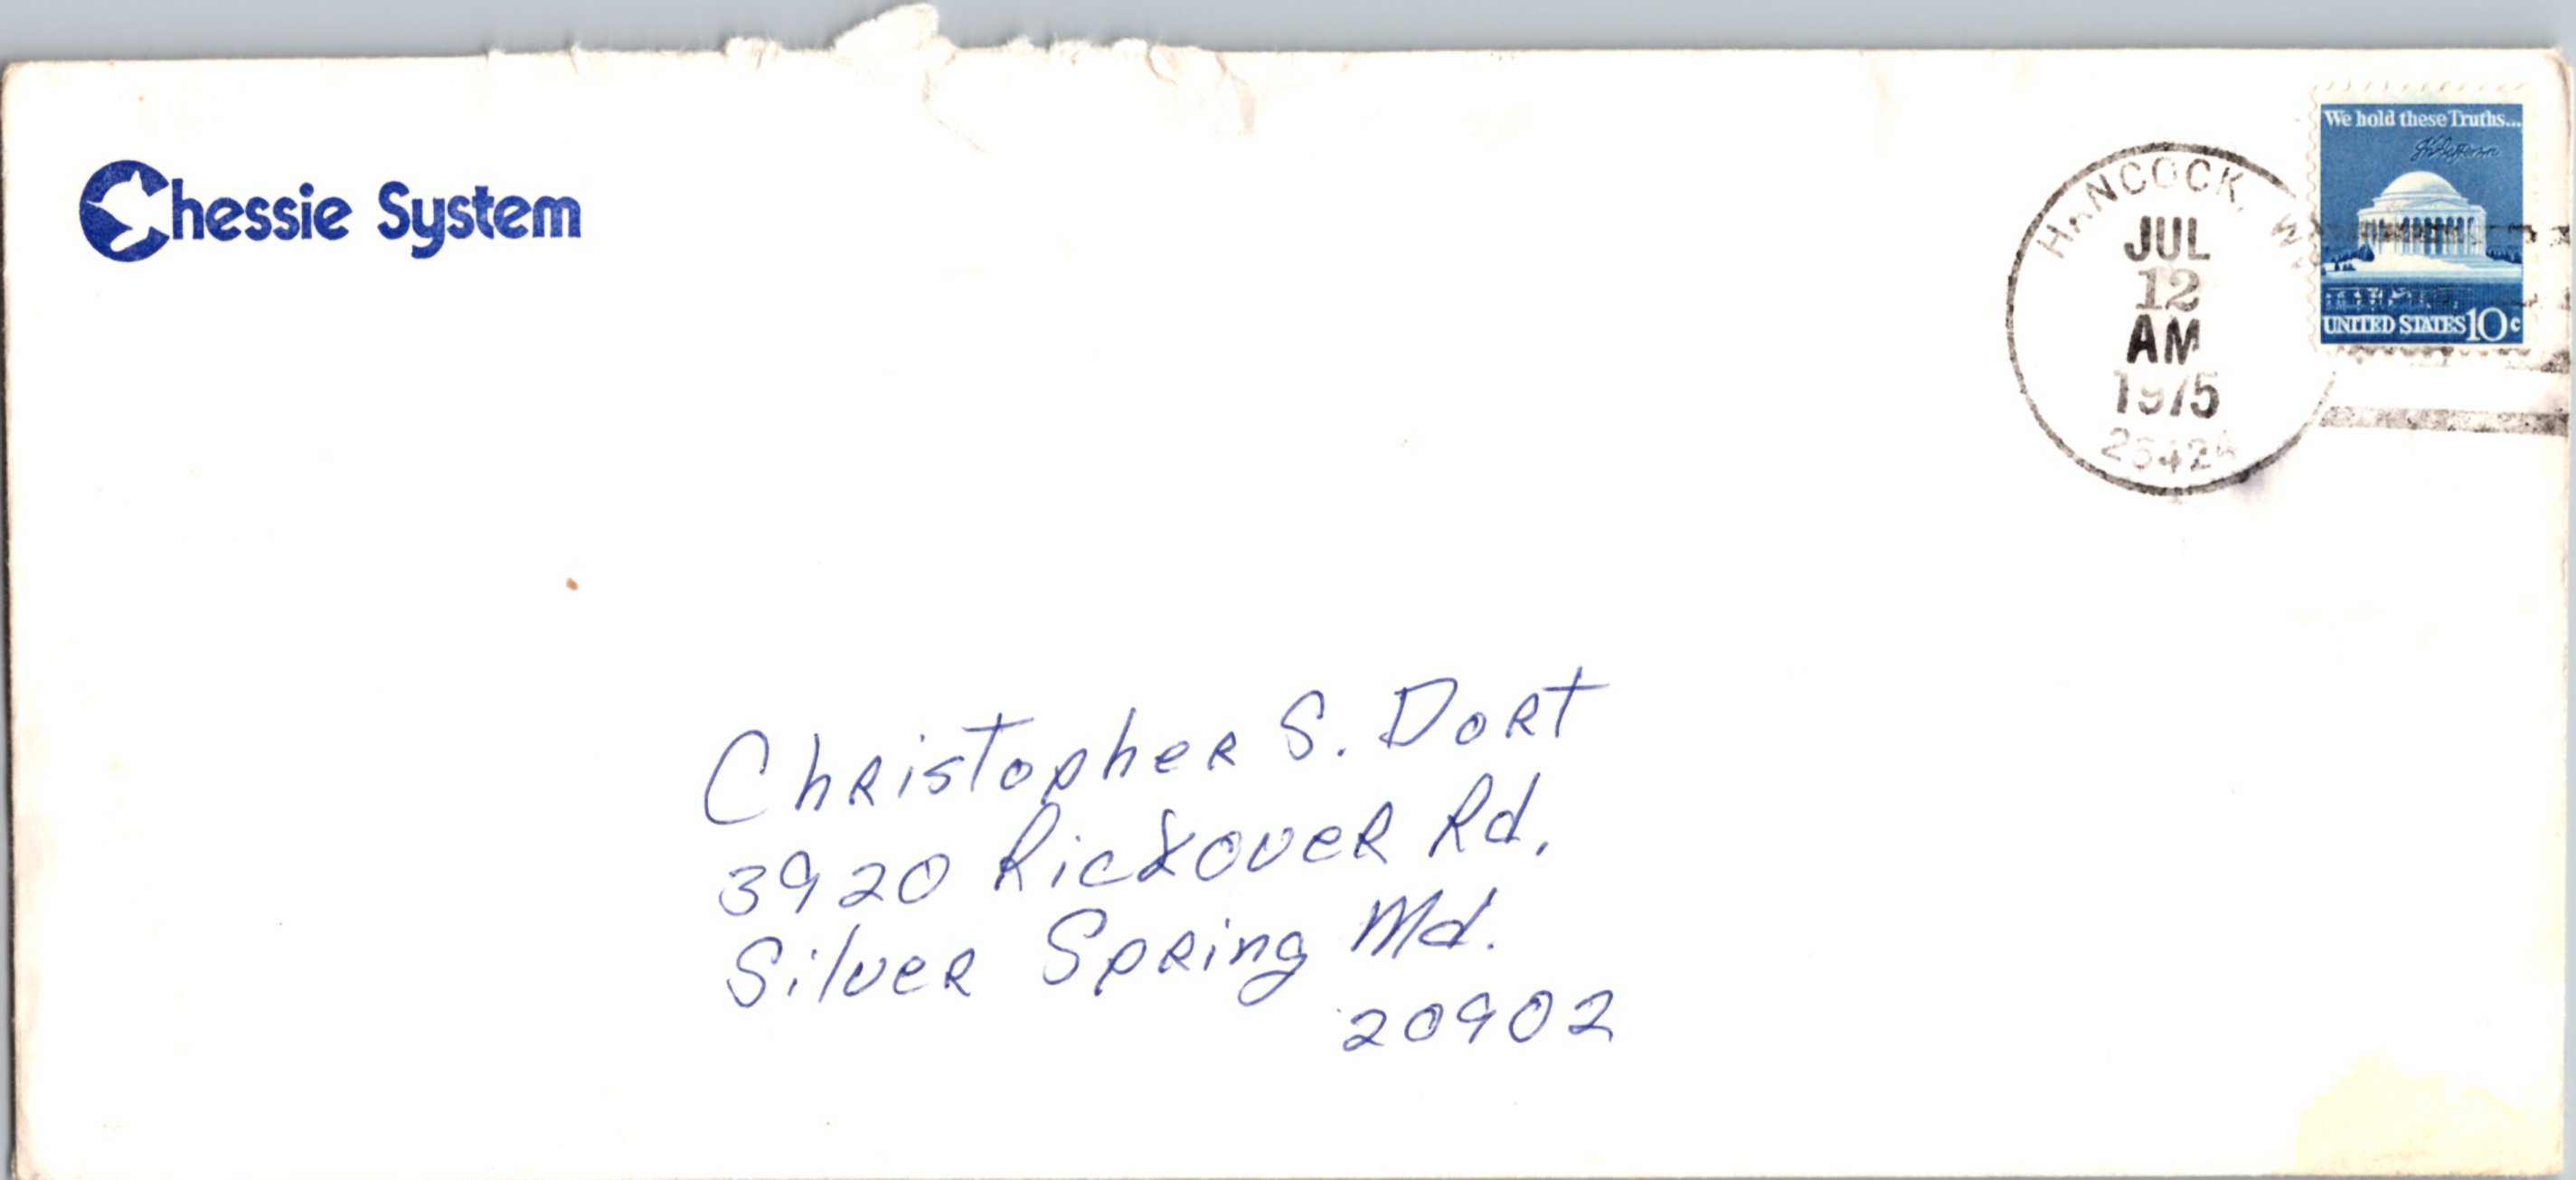 Chessie System
We hold these Truths...
HANCOCK, W.
JUL
12
AM
1975
UNITED STATES 10c
Christopher S. Dort
3920 Rickover Rd.
Silver Spring Md.
20902